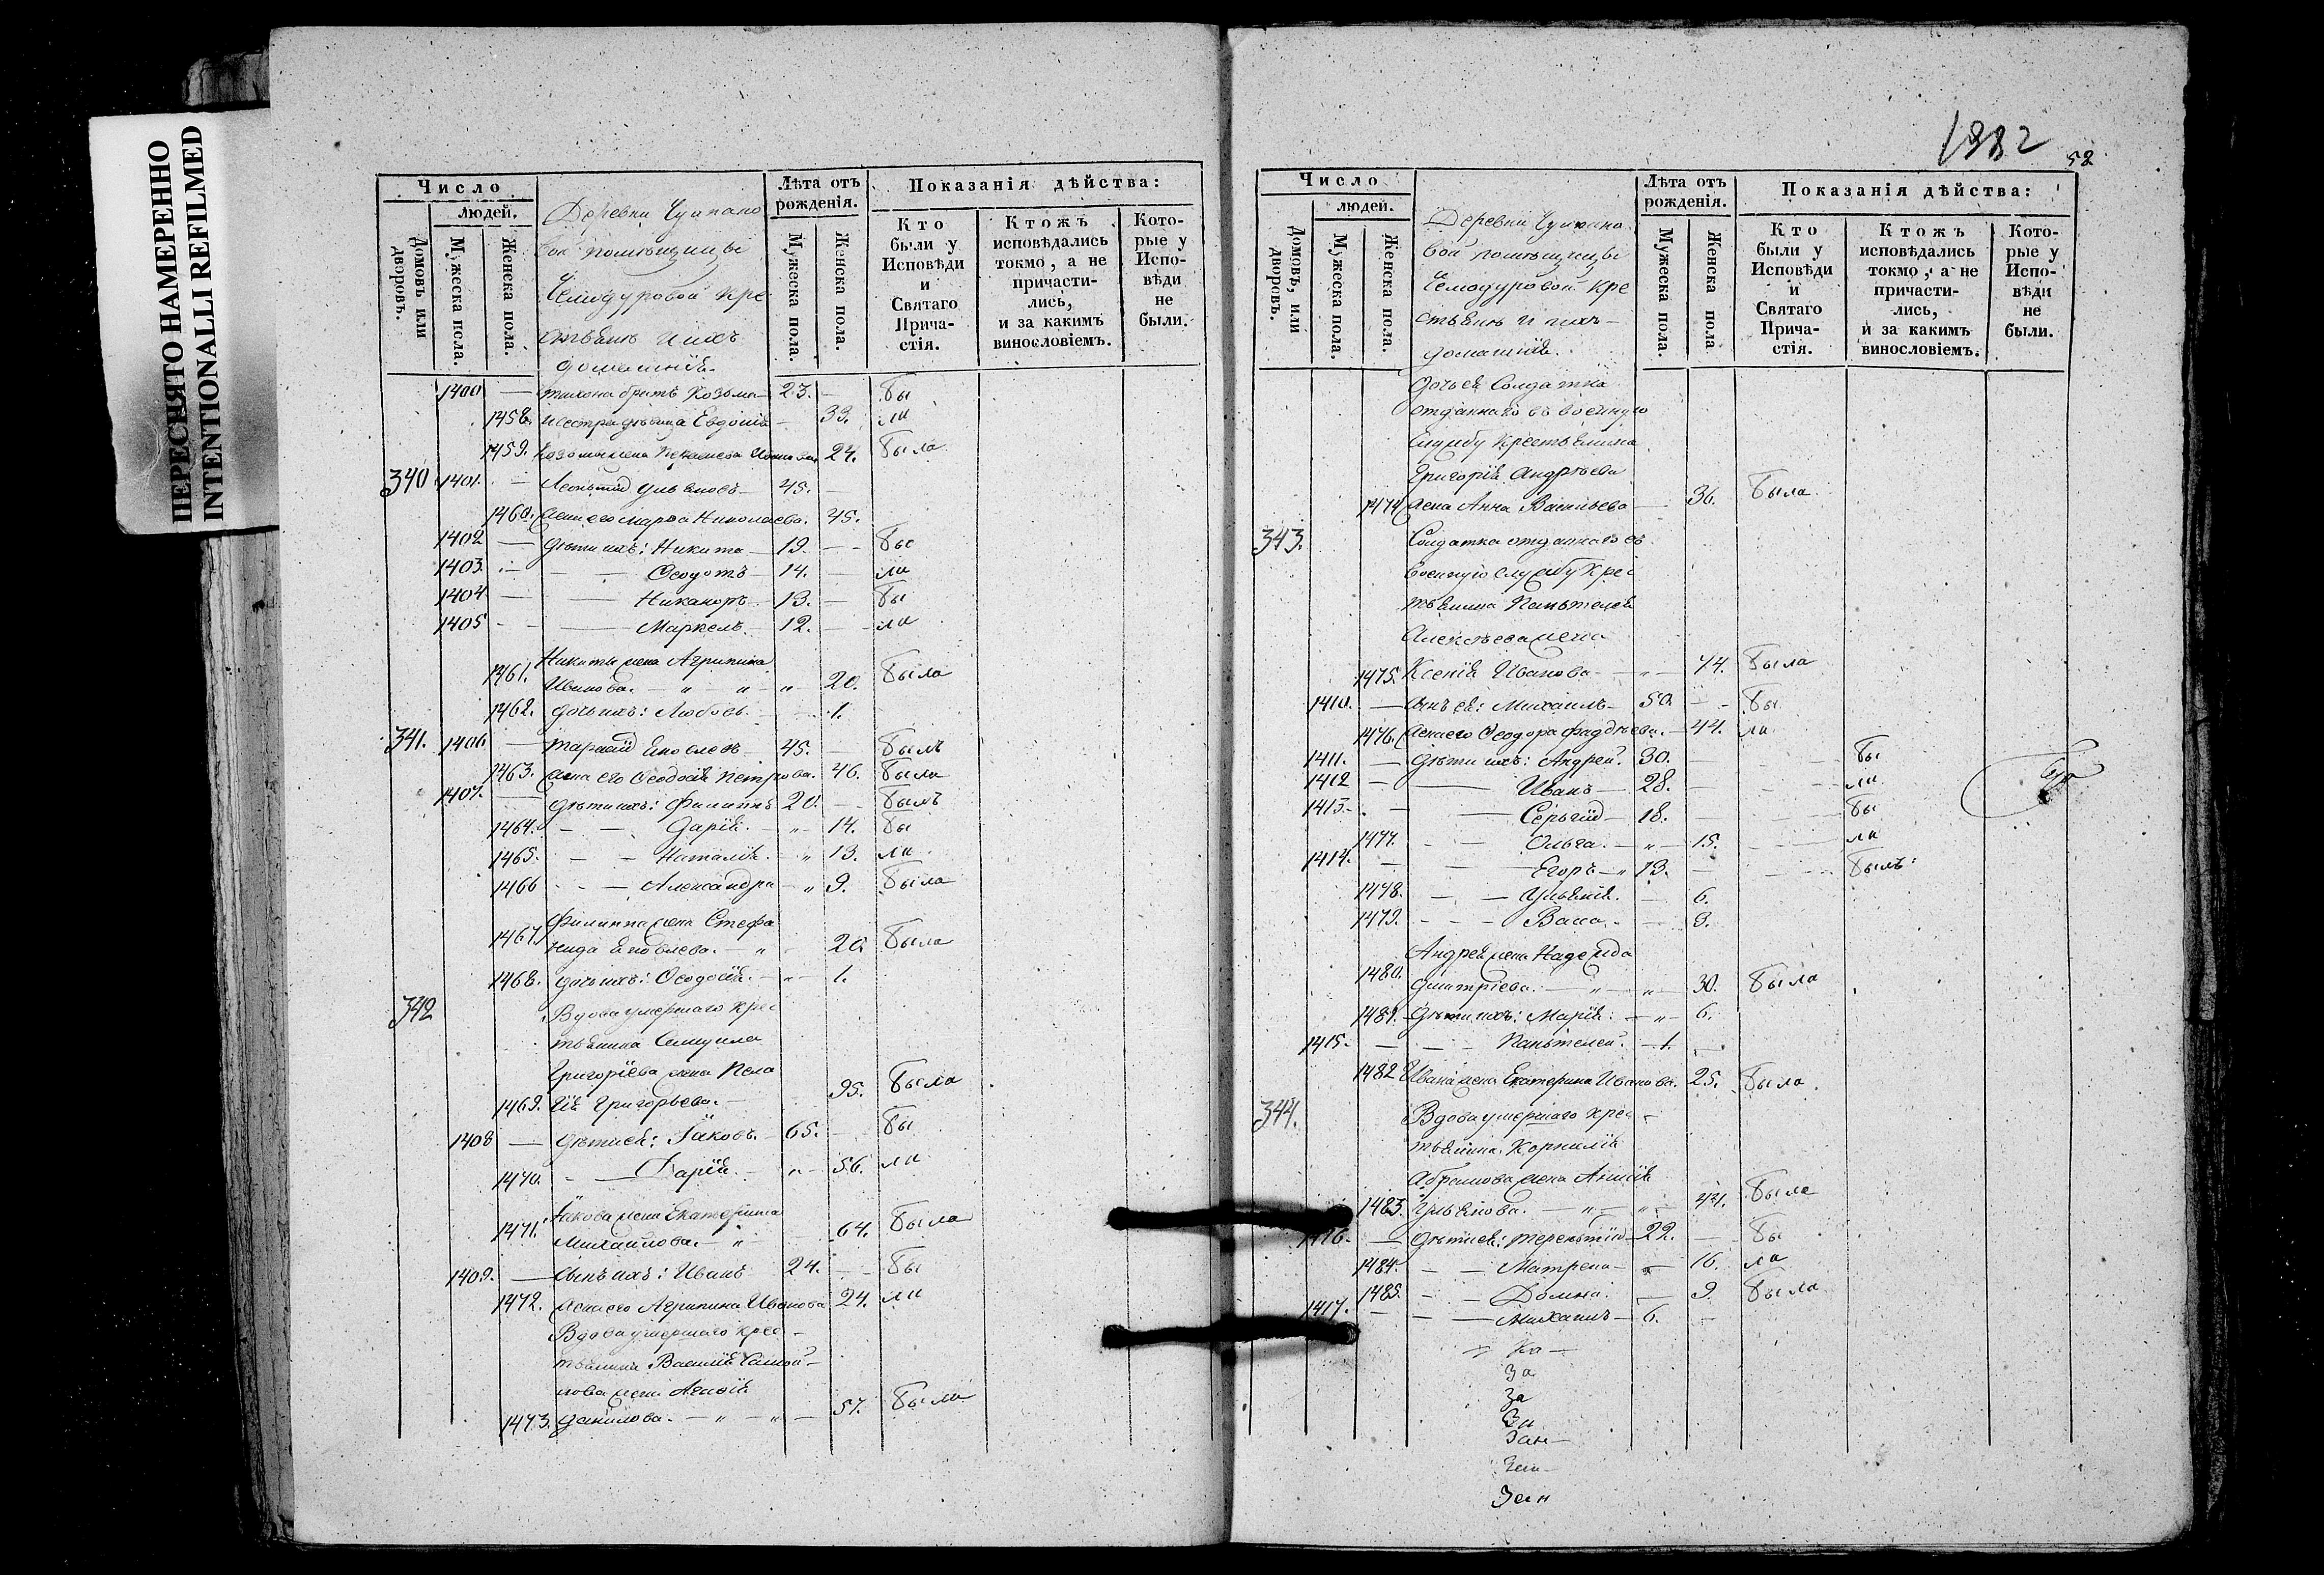 ПЕРЕСНЯТО НАМЕРЕННО
INTENTIONALLI REFILMED
Число
людей.
Домовъ или дворовъ.
Мужеска пола.
Женска пола.
Деревни
вой помѣщицы
Чемодуровой кре
стьянъ и ихъ
домашнія
Лѣта отъ рожденія.
Мужеска пола.
Женска пола.
Показанія дѣйства:
Кто были у Исповѣди и Святаго Прича-стія.
Ктожъ исповѣдались токмо, а не причасти-лись, и за какимъ винословіемъ.
Кото-рые у Испо-вѣди не были.
1400 — Тихона братъ Козьма — 23. — Бы
1458. и сестра дѣвица Евдокія — 33. ли
1459. Козьмы жена 24. Была
340 1401. — Леонтій Ульяновъ — 45. —
1460. Жена его Марфа Николаева. 45.
1402 — Дѣти ихъ: Никита — 19. — Бы
1403. — Ѳеодотъ — 14. — ли
1404 — Никаноръ — 13. — Бы
1405 — Маркелъ — 12. — ли
Никиты жена Агрипина
1461. Иванова. — 20. Была
1462. Дочь ихъ: Любовь. — 1.
341. 1406 — Яковлевъ — 45. — Былъ
1463. Жена его Ѳеодосія Петрова. 46. Была
1407. — Дѣти ихъ: Филиппъ 20. — Былъ
1464. — Дарія. — 14. Бы
1465. — Наталія. — 13. ли
1466 — Александра — 9. Была
Филиппа жена Стефа
1467. нида Яковлева. — 20. Была
1468. Дочь ихъ: Ѳеодосія. — 1.
342 Вдова умершаго крес
тьянина Самуила
Григорьева жена Пела
1469. гія Григорьева. — 95. Была
1408 — Дѣти ея: Іаковъ. — 65. — Бы
1470. — Дарія. — 56. ли
Іакова жена Екатерина
1471. Михаилова. — 64. Была
1409. — Сынъ ихъ: Иванъ 24. — Бы
1472. Жена его Агрипина Иванова 24. ли
Вдова умершаго крес
тьянина Василія Самой
лова жена
1473. Данилова. — 57. Была
1882
52
Число
людей.
Домовъ, или дворовъ.
Мужеска пола.
Женска пола.
Деревни
вой помѣщицы
Чемодуровой кре
стьянъ и ихъ
домашнія.
Лѣта отъ рожденія.
Мужеска пола.
Женска пола
Показанія дѣйства:
Кто были у Исповѣди и Святаго Прича-стія.
Ктожъ исповѣдались токмо, а не причасти-лись, и за какимъ винословіемъ.
Кото-рые у Испо-вѣди не были.
Дочь ея Солдатка
отданнаго въ военную
службу крестьянина
Григорія Андрѣева
1474 жена Анна Васильева — 36. Была.
343. Солдатка отданнаго въ
военную службу крес
тьянина Пантелея
Алексѣева жена
1475. Ксенія Иванова — 74. Была
1410. — Сынъ ея: Михаилъ — 50. — Бы
1476. Жена его Ѳеодора Фаддѣева. — 44. ли
1411. — Дѣти ихъ: Андрей. 30. — Бы
1412 — Иванъ — 28. — ли
1413. — Сергій — 18. — Бы
1477. — Ольга. — 15. — ли
1414. — Егоръ — 13. — Былъ.
1478. — Ульянія. — 6.
1479. — Васса. — 3.
Андрея жена Надежда
1480. Дмитріева. — 30. Была
1481. Дѣти ихъ: Марія. — 6.
1415. — Пантелей. — 1. —
1482 Ивана жена Екатерина Иванова. 25. Была.
344. Вдова умершаго крес
тьянина Корнилія
Абрамова жена Анисія
1483. Ульянова. — 44. Была
1416. — Дѣти ея: Терентій — 22. — Бы
1484. — Матрена — 16. ли
1485. — Домна. — 9. Была
1417. — Михаилъ — 6. —
На
За
За
За
Зан
Зан